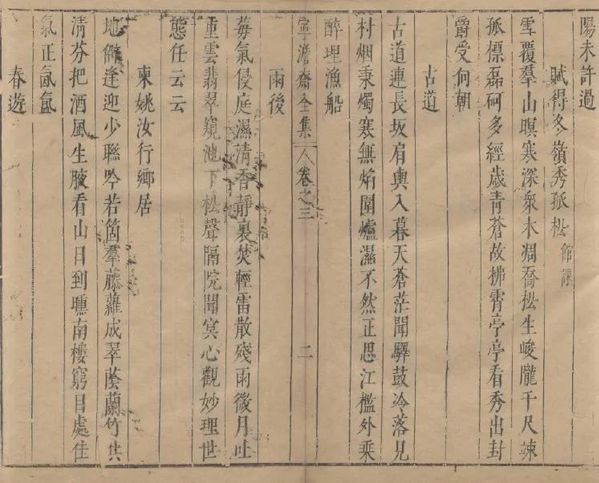 陽未許過
賦得冬嶺秀孤松館課
雪覆羣山暝寒深衆木凋喬松生峻隴千尺竦
孤標磊砢多經歲青蒼故拂霄亭亭看秀出封
爵受何朝
古道
古道連長坂肩輿入暮天蒼茫聞驛鼓冷落見
村烟秉燭寒無焰圍爐濕不然正思江檻外乗
醉理漁船
寧澹齋全集
卷之三
二
雨後
莓氣侵庭濕清香靜裏焚輕雷散殘雨微月吐
重雲翡翠窺池下松聲隔院聞冥心觀妙理世
態任云云
柬姚汝行鄉居
地僻逢迎少聯吟若箇羣藤蘿成翠蔭蘭竹共
清芬把酒風生腋看山日到曛南樓窮目處佳
氣正氤氳
春遊